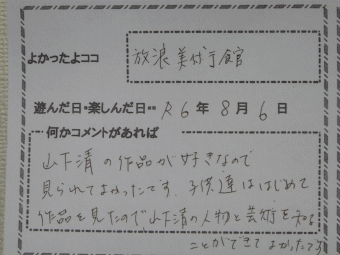 よかったよココ
放浪美術館
遊んだ日・楽しんだ日・・ R6年8月6日
何かコメントがあれば
山下清の作品が好きなので
見られてよかったです。子供達ははじめて
作品を見たので、山下清の人物と芸術を知る
ことができてよかったです